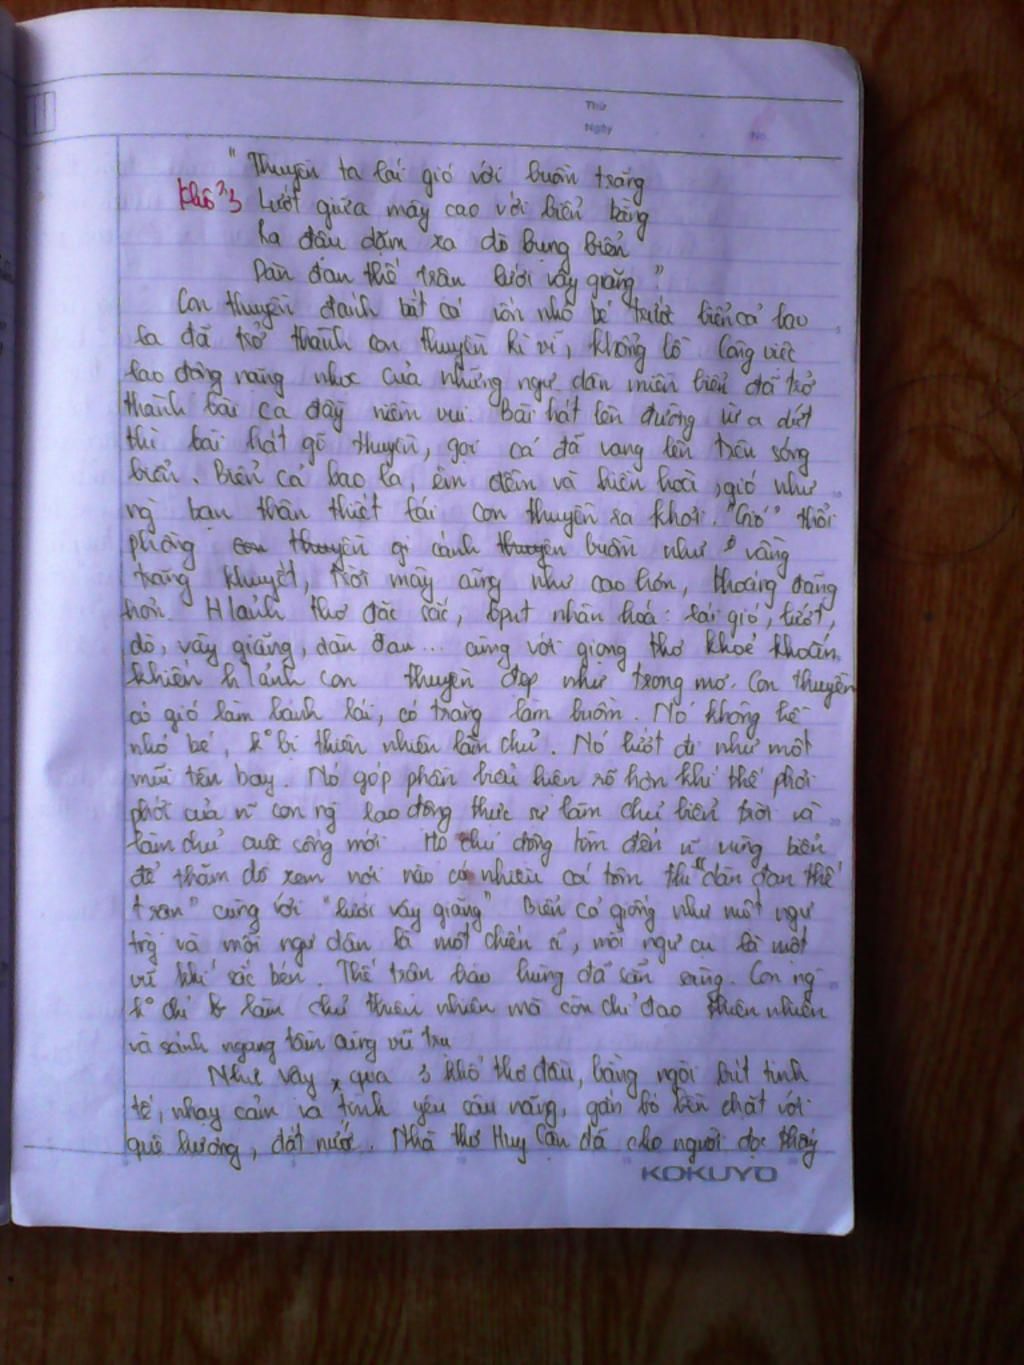 Thứ
Ngày
No.
" Thuyền ta lái gió với buồm trăng
Khổ 3 Lướt giữa mây cao với biển bằng
Ra đậu dặm xa dò bụng biển
Dàn đan thế trận lưới vây giăng "
Con thuyền đánh bắt cá vốn nhỏ bé trước biển cả bao
la đã trở thành con thuyền kì vĩ, khổng lồ. Công việc
lao động nặng nhọc của những ngư dân miền biển đã trở
thành bài ca đầy niềm vui. Bài hát lên đường vừa dứt
thì bài hát gõ thuyền, gọi cá đã vang lên trên sóng
biển. Biển cả bao la, êm đềm và hiền hoà, gió như
ng bạn thân thiết lái con thuyền ra khơi. "Gió" thổi
phồng con thuyền cánh thuyền buồm như vầng
trăng khuyết, trời mây cũng như cao hơn, thoáng đãng
hơn. H/ảnh thơ đặc sắc, bput nhân hoá: lái gió, lướt,
dò, vây giăng, dàn đan... cùng với giọng thơ khoẻ khoắn
khiến h/ảnh con thuyền đẹp như trong mơ. Con thuyền
có gió làm bánh lái, có trăng làm buồm. Nó không hề
nhỏ bé, k° bị thiên nhiên làm chủ. Nó lướt đi như một
mũi tên bay. Nó góp phần biểu hiện rõ hơn khí thế phơi
phới của n~ con ng lao động thực sự làm chủ biển trời và
làm chủ cuộc sống mới. Họ chủ động tìm đến n~ vùng biển
để thăm dò xem nơi nào có nhiều cá tôm thì "dàn đan thế
trận" cùng với "lưới vây giăng". Biển cả giống như một ngư
trg và mỗi ngư dân là một chiến sĩ, mỗi ngư cụ là một
vũ khí sắc bén. Thế trận hào hùng đã sẵn sàng. Con ng
k° chỉ làm chủ thiên nhiên mà còn chỉ đạo thiên nhiên
và sánh ngang tầm cùng vũ trụ
Như vậy, qua 3 khổ thơ đầu, bằng ngòi bút tinh
tế, nhạy cảm và tình yêu sâu nặng, gắn bó bền chặt với
quê hương, đất nước. Nhà thơ Huy Cận đã cho người đọc thấy
KOKUYO